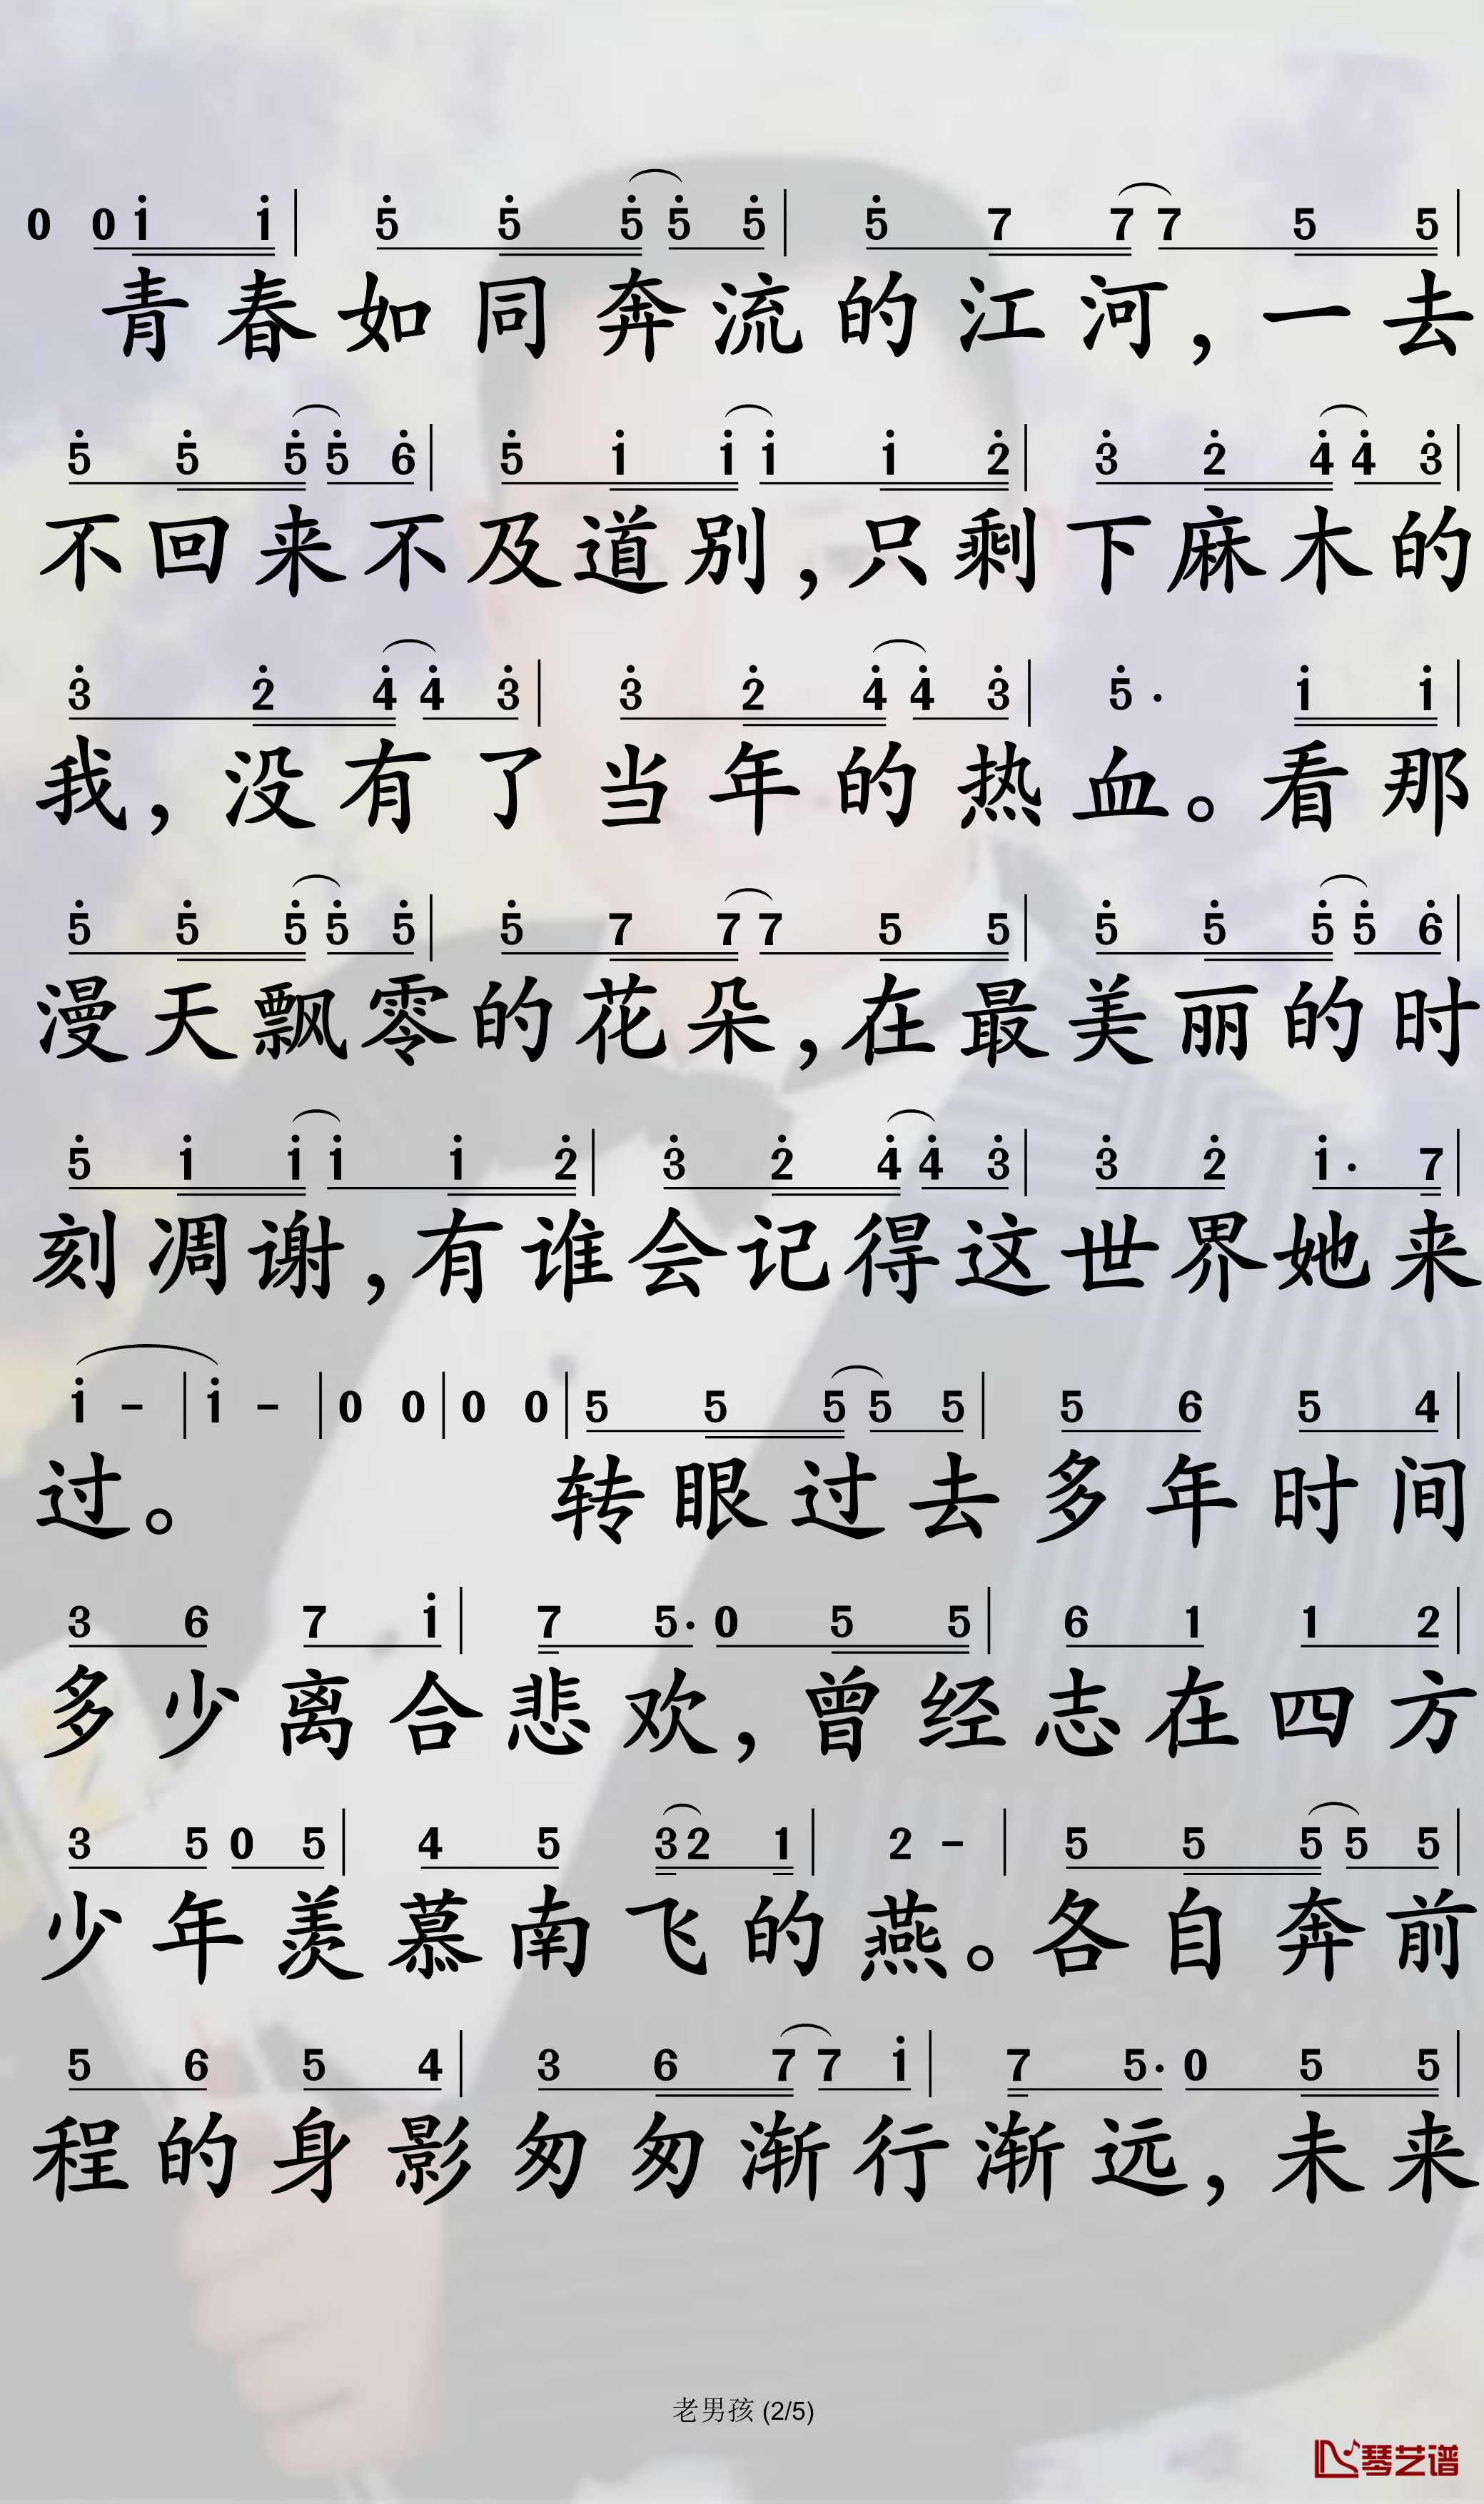 0 0 i̇ i̇ | 5̇ 5̇ 5̇ 5̇ 5̇ | 5̇ 7 7 7 5 5 |
青春如同奔流的江河，一去
5̇ 5̇ 5̇ 5̇ 6̇ | 5̇ 1̇ 1̇ 1̇ 1̇ 2̇ | 3̇ 2̇ 4̇ 4̇ 3̇ |
不回来不及道别，只剩下麻木的
3̇ 2̇ 4̇ 4̇ 3̇ | 3̇ 2̇ 4̇ 4̇ 3̇ | 5̇· 1̇ 1̇ |
我，没有了当年的热血。看那
5̇ 5̇ 5̇ 5̇ 5̇ | 5̇ 7 7 7 5 5 | 5̇ 5̇ 5̇ 5̇ 6̇ |
漫天飘零的花朵，在最美丽的时
5̇ 1̇ 1̇ 1̇ 1̇ 2̇ | 3̇ 2̇ 4̇ 4̇ 3̇ | 3̇ 2̇ 1̇· 7 |
刻凋谢，有谁会记得这世界她来
1̇ - | 1̇ - | 0 0 | 0 0 | 5 5 5 5 5 | 5 6 5 4 |
过。 转眼过去多年时间
3 6 7 1̇ | 7 5· 0 5 5 | 6 1 1 2 |
多少离合悲欢，曾经志在四方
3 5 0 5 | 4 5 3 2 1 | 2 - | 5 5 5 5 5 |
少年羡慕南飞的燕。各自奔前
5 6 5 4 | 3 6 7 7 1̇ | 7 5· 0 5 5 |
程的身影匆匆渐行渐远，未来
老男孩 (2/5)
琴艺谱